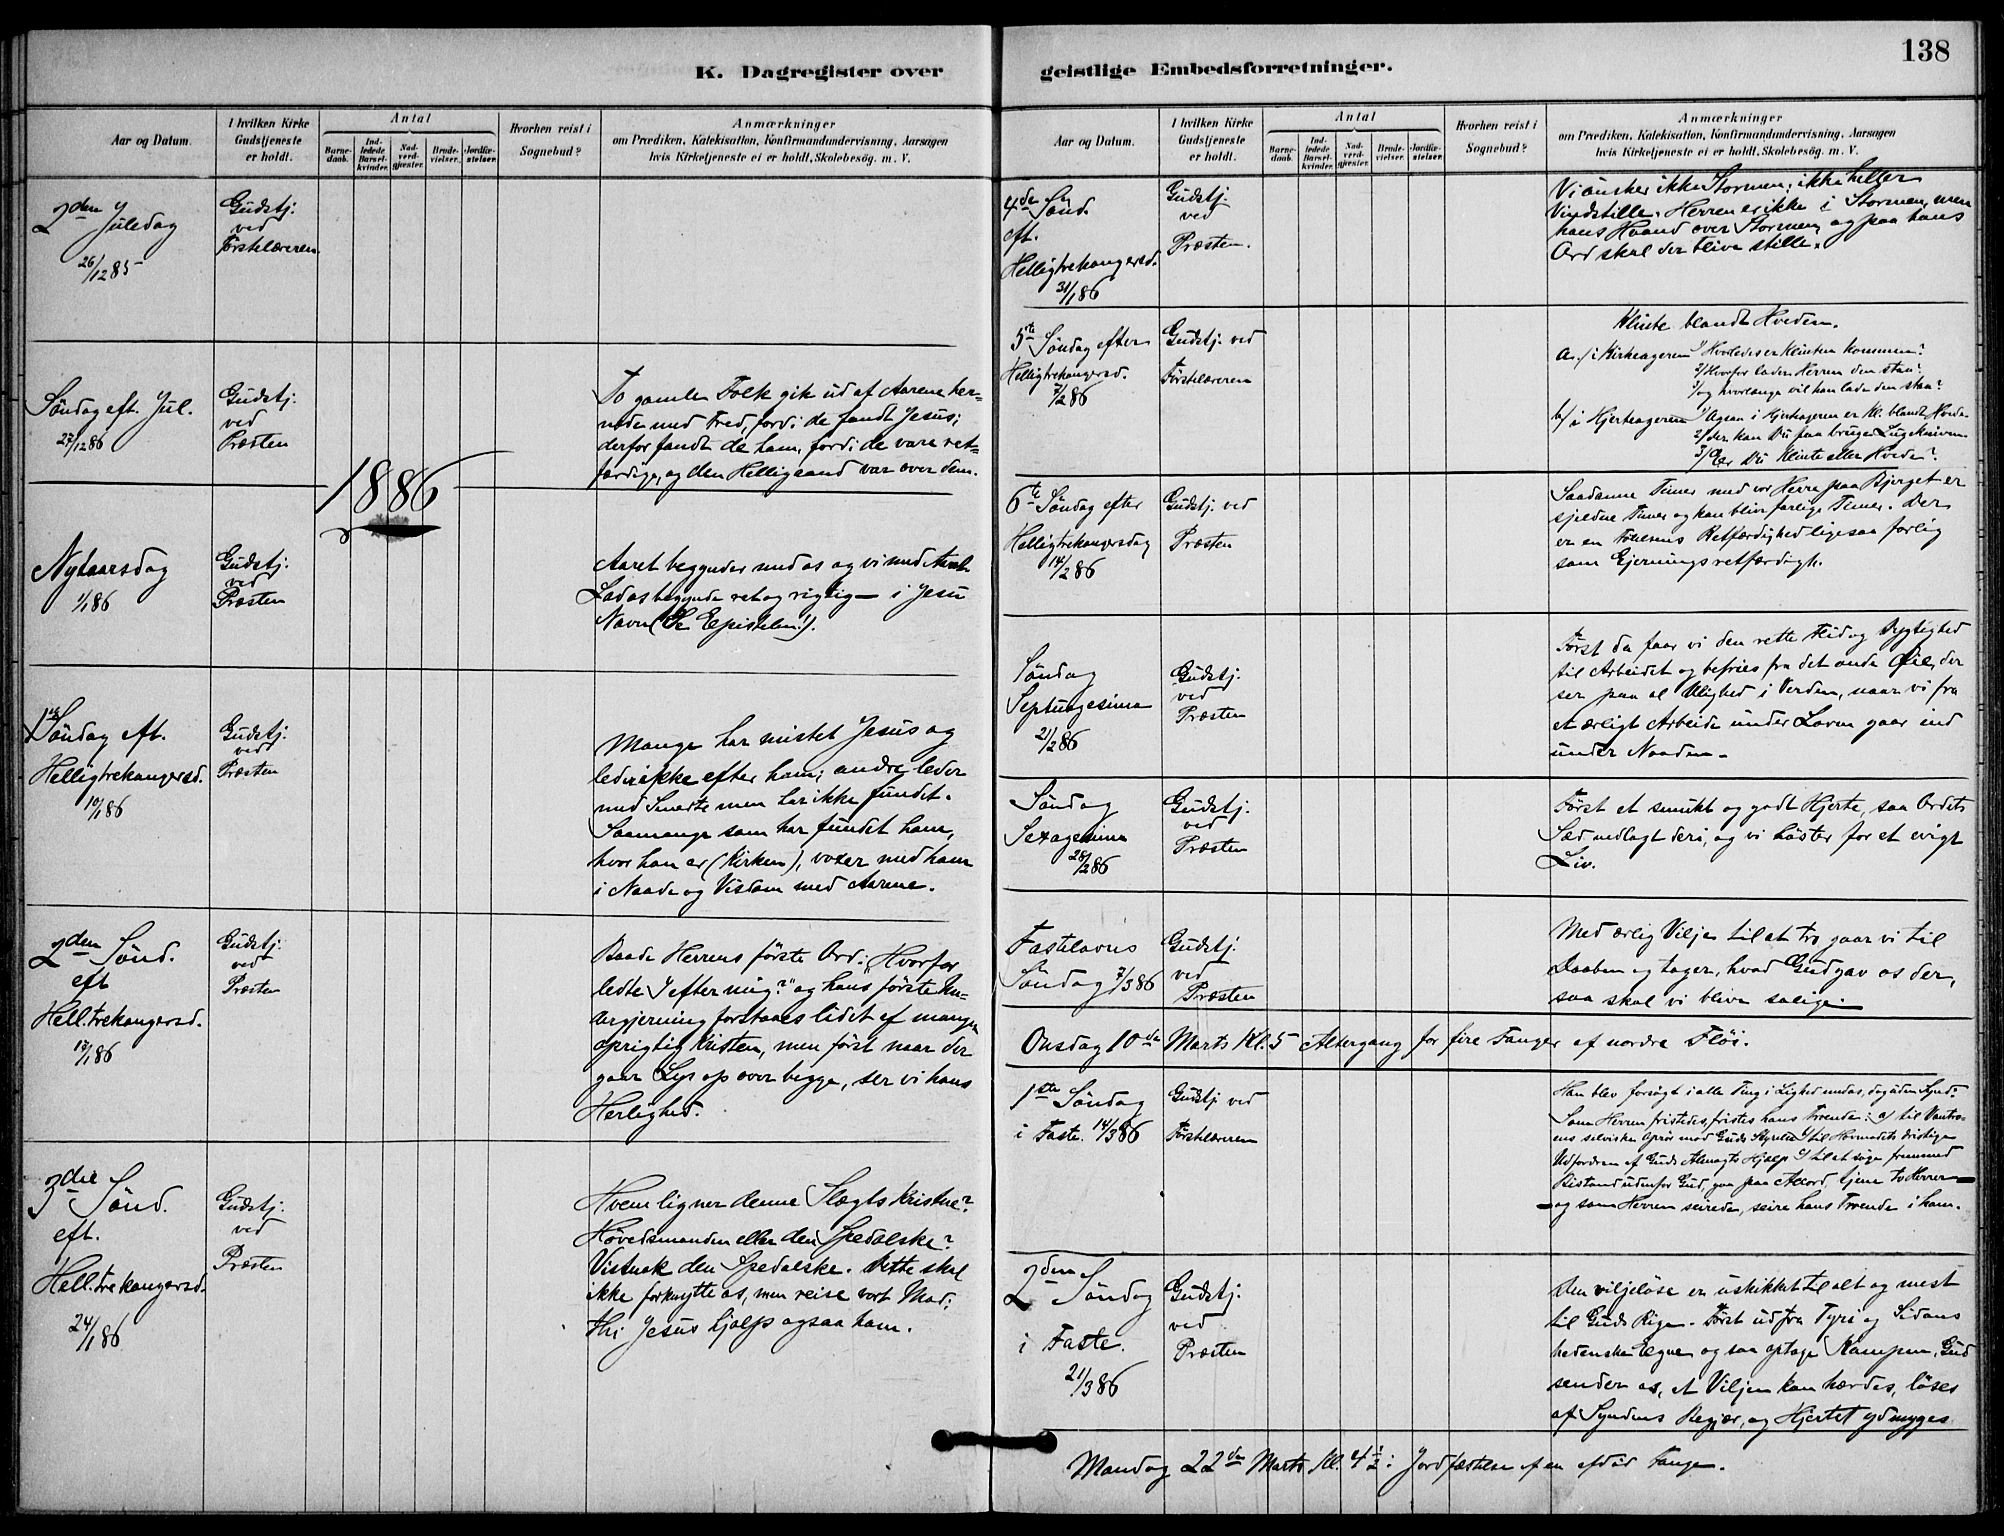 138
K. Dagregister over
geistlige Embedsforretninger.
Aar og Datum.
I hvilken Kirke
Gudstjeneste
er holdt.
Antal
Barne-
daab.
Ind-
ledede
Barsel-
kvinder.
Nad-
verd-
gjester.
Brude-
vielser.
Jordfæ-
stelser.
Hvorhen reist i
Sognebud?
Anmærkninger
om Prædiken, Katekisation, Konfirmandundervisning, Aarsagen
hvis Kirketjeneste ei er holdt, Skolebesøg. m. V.
2den Juledag
26/12 85
Gudstj.
ved
Førstelæreren
Søndag eft. Jul.
27/12 86
Gudstj.
ved
Præsten
To gamle Folk gik ud af Aarene her-
nede med Fred, fordi de fandt Jesus;
derfor fandt de ham, fordi de vare ret-
færdige, og den Helligaand var over dem.
1886
Nytaarsdag
1/1 86
Gudstj.
ved
Præsten
Aaret begynder med os og vi med Aaret.
Lad os begynde ret og rigtig – i Jesu
Navn (Se Epistelen!).
1ste Søndag eft.
Helligtrekongersd.
10/1 86
Gudstj.
ved
Præsten
Mange har mistet Jesus og
leder ikke efter ham; andre leder
med Smerte men har ikke fundet.
Saamange som har fundet ham,
hvor han er (Kirken), voxer med ham
i Naade og Visdom med Aarene.
2den Sønd.
eft
Hell.trekongersd.
17/1 86
Gudstj.
ved
Præsten
Baade Herrens første Ord: "Hvorfor
ledte I efter mig?" og hans første Un-
dergjerning forstaaes lidet af mangen
oprigtig Kristen, men først naar der
gaar Lys op over begge, ser vi hans
Herlighed.
3die Sønd.
eft.
Hell.trekongersd.
24/1 86
Gudstj.
ved
Præsten
Hvem ligner denne Slægts Kristne?
Høvedsmanden eller den Spedalske?
Vistnok den Spedalske. Dette skal
ikke forknytte os, men reise vort Mod;
thi Jesus hjalp ogsaa ham.
Aar og Datum.
I hvilken Kirke
Gudstjeneste
er holdt.
Antal
Barne-
daab.
Ind-
ledede
Barsel-
kvinder.
Nad-
verd-
gjester.
Brude-
vielser.
Jordfæ-
stelser.
Hvorhen reist i
Sognebud?
Anmærkninger
om Prædiken, Katekisation, Konfirmandundervisning, Aarsagen
hvis Kirketjeneste ei er holdt, Skolebesøg. m. V.
4de Sønd.
eft.
Helligtrekongersd.
31/1 86
Gudstj.
ved
Præsten.
Vi ønsker ikke Stormen; ikke heller
Vindstille. Herren er ikke i Stormen, men
hans Haand over Stormen, og paa hans
Ord skal der blive stille.
5te Søndag efter
Helligtrekongersd.
7/2 86
Gudstj. ved
Førstelæreren
Klinte blandt Hveden.
a./ i Kirkeageren 1/ Hvorledes er Klinten kommen?
2/ Hvorfor lader Herren den staa?
3/ og hvorlænge vil han lade den staa?
b/ i Hjerteageren 1/ Ogsaa i Hjerteageren er Kl. blandt Hvede
2/ der kan Du faa bruge Lugekniven
3/ Er Du Klinte eller Hvede?
6te Søndag efter
Helligtrekongersdag
14/2 86
Gudstj. ved
Præsten
Saadanne Timer med vor Herre paa Bjerget er
sjeldne Timer og kan blive farlige Timer. Der
er en Følelsens Retfærdighed ligesaa farlig
som Gjerningsretfærdigh.
Søndag
Septuagesima
21/2 86
Gudstj.
ved
Præsten
Først da faar vi den rette Flid og Dygtighed
til Arbeidet og befries fra det onde Øie, der
ser paa al Ulighed i Verden, naar vi fra
et ærligt Arbeide under Loven gaar ind
under Naaden.
Søndag
Sexagesima
28/2 86
Gudstj.
ved
Præsten
Først et smukt og godt Hjerte, saa Ordets
Sæd nedlagt deri, og vi høster for et evigt
Liv.
Fastelavns
Søndag 7/3 86
Gudstj.
ved
Præsten
Med ærlig Vilje til at tro gaar vi til
Daaben og tager, hvad Gud gav os der,
saa skal vi blive salige.
Onsdag 10de Marts Kl. 5 Altergang for fire Fanger af nordre Fløi.
1ste Søndag
i Faste. 14/3 86
Gudstj. ved
Førstelæreren
Han blev forsøgt i alle Ting i Lighed med os, dog uden Synd.
Som Herren fristedes, fristes hans Troende: a/ til Vantro-
ens selviske Oprør mod Guds Styrelse til Hovmodets dristige
Udfordren af Guds Almagts Hjælp til at søge fremmed
Bistand udenfor Gud, gaa paa Akkord, tjene to Herrer
– og som Herren seirede, seire hans Troende i ham.
2den Søndag
i Faste.
21/3 86
Gudstj.
ved
Præsten
Den viljeløse er uskikket til alt og mest
til Guds Rige. Først ud fra Tyri og Sidons
hedenske Egne og saa optage Kampen, Gud
sender os, at Viljen kan hærdes, løses
af Syndens Begjær, og Hjertet ydmyges
Mandag 22de Marts Kl. 4 1/2: Jordfæstelse af en afdød Fange.